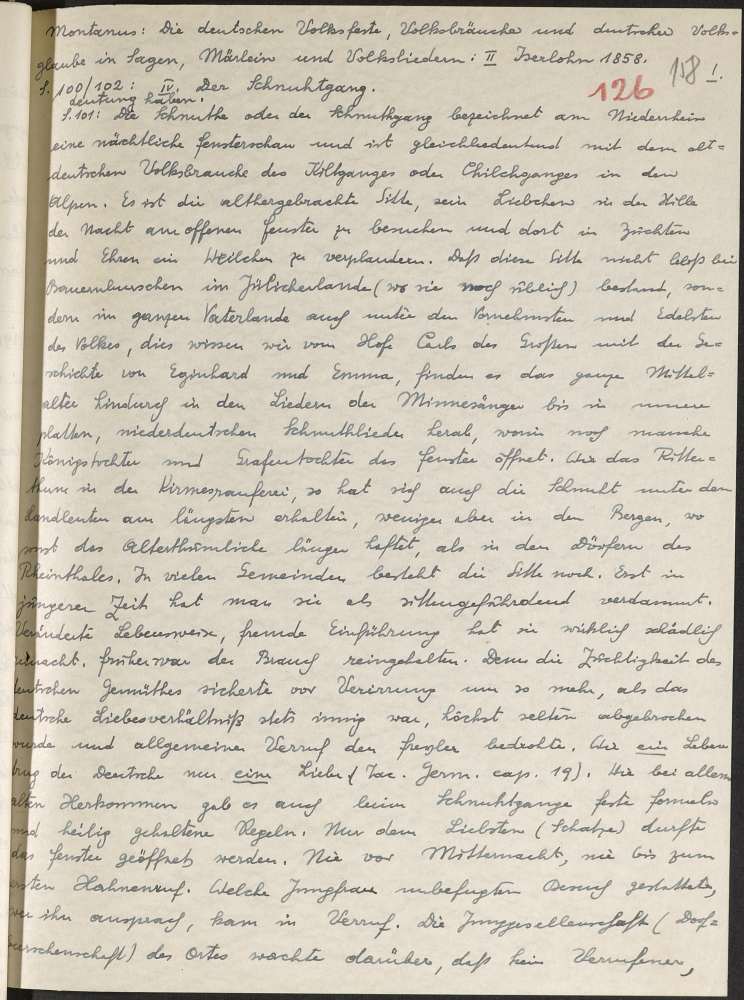 Montanus: Die deutschen Volksfeste, Volksbräuche und deutscher Volks-
glaube in Sagen, Märlein und Volksliedern: II Iserlohn 1858.
S. 100/102: IV. Der Schnuhtgang.
126 118 I.
deutung haben.
S.101: Die Schnuthe oder der Schnuthgang bezeichnet am Niederrhein
eine nächtliche Fensterschau und ist gleichbedeutend mit dem alt-
deutschen Volksbrauche des Kiltganges oder Chilchganges in den
Alpen. Es ist die althergebrachte Sitte, sein Liebchen in der Stille
der Nacht am offenen Fenster zu besuchen und dort in Züchten
und Ehren ein Weilchen zu verplaudern. Daß diese Sitte nicht bloß bei
Bauernburschen im Jülicherlande (wo sie noch üblich) bestand, son-
dern im ganzen Vaterlande auch unter den Vornehmsten und Edelsten
des Volkes, dies wissen wir vom Hofe Carls des Großen mit der Ge-
schichte von Eginhard und Emma, finden es das ganze Mittel-
alter hindurch in den Liedern der Minnesänger bis in unsere
platten, niederdeutschen Schnuthlieder herab, worin noch manche
Königstochter und Grafentochter das Fenster öffnet. Wie das Ritter-
thum in der Kirmesrauferei, so hat sich auch die Schnuht unter den
Landleuten am längsten erhalten, weniger aber in den Bergen, wo
sonst das Alterthümliche länger haftet, als in den Dörfern des
Rheinthales. In vielen Gemeinden besteht die Sitte noch. Erst in
jüngerer Zeit hat man sie als sittengefährdend verdammt.
Veränderte Lebensweise, fremde Einführung hat sie wirklich schädlich
gemacht. Früher war der Brauch reingehalten. Denn die Züchtigkeit des
deutschen Gemüthes sicherte vor Verirrung um so mehr, als das
deutsche Liebesverhältniß stets innig war, höchst selten abgebrochen
wurde und allgemeiner Verruf den Frevler bedrohte. Wie ein Leben
trug der Deutsche nur eine Liebe (Tac. Germ. cap. 19). Wie bei allem
alten Herkommen gab es auch beim Schnuhtgange feste Formeln
und heilig gehaltene Regeln. Nur dem Liebsten (Schatze) durfte
das Fenster geöffnet werden. Nie vor Mitternacht, nie bis zum
ersten Hahnenruf. Welche Jungfrau unbefugten Besuch gestattete,
wer ihn aussprach, kam in Verruf. Die Junggesellenschaft (Dorf-
burschenschaft) des Ortes wachte darüber, daß kein Verrufener,